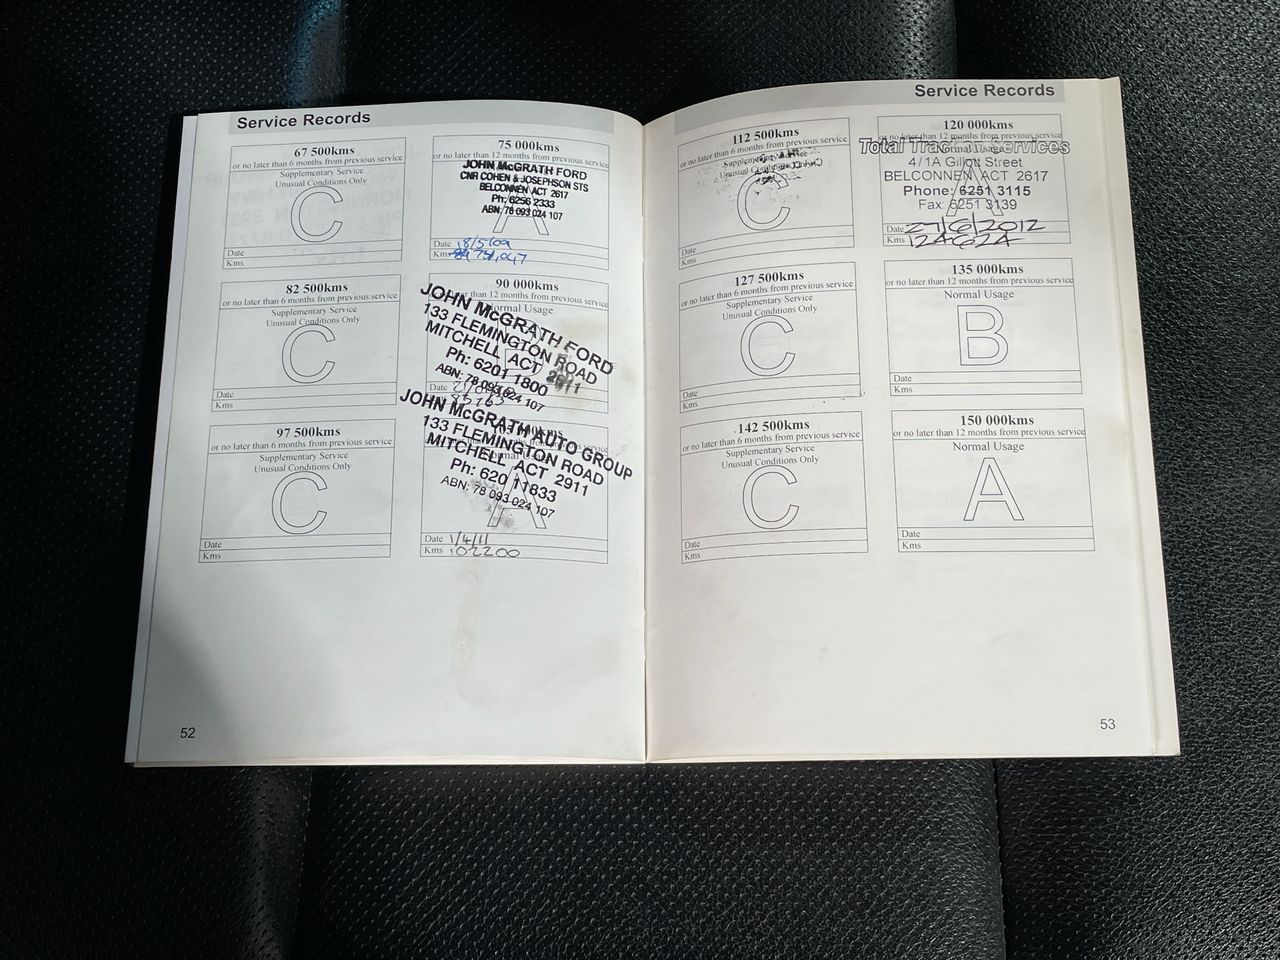 Service Records
67 500kms
or no later than 6 months from previous service
Supplementary Service
Unusual Conditions Only
C
Date
Kms
75 000kms
or no later than 12 months from previous service
JOHN McGRATH FORD
CNR COHEN & JOSEPHSON STS
BELCONNEN ACT 2617
Ph: 6256 2333
ABN: 78 093 024 107
A
Date 18/5/09
Kms 75,047
82 500kms
or no later than 6 months from previous service
Supplementary Service
Unusual Conditions Only
C
Date
Kms
90 000kms
or no later than 12 months from previous service
Normal Usage
JOHN McGRATH FORD
133 FLEMINGTON ROAD
MITCHELL ACT 2911
Ph: 6201 1800
ABN: 78 093 024 107
Date
Kms
97 500kms
or no later than 6 months from previous service
Supplementary Service
Unusual Conditions Only
C
Date
Kms
JOHN McGRATH AUTO GROUP
133 FLEMINGTON ROAD
MITCHELL ACT 2911
Ph: 620 11833
ABN: 78 093 024 107
A
Date 1/4/11
Kms 102200
52
Service Records
112 500kms
or no later than 6 months from previous service
Supplementary Service
Unusual
C
Date
Kms
120 000kms
or no later than 12 months from previous service
Normal Usage
Total Services
4/1A Gillott Street
BELCONNEN ACT 2617
Phone: 6251 3115
Fax 6251 3139
A
Date 27/6/2012
Kms 124624
127 500kms
or no later than 6 months from previous service
Supplementary Service
Unusual Conditions Only
C
Date
Kms
135 000kms
or no later than 12 months from previous service
Normal Usage
B
Date
Kms
142 500kms
or no later than 6 months from previous service
Supplementary Service
Unusual Conditions Only
C
Date
Kms
150 000kms
or no later than 12 months from previous service
Normal Usage
A
Date
Kms
53